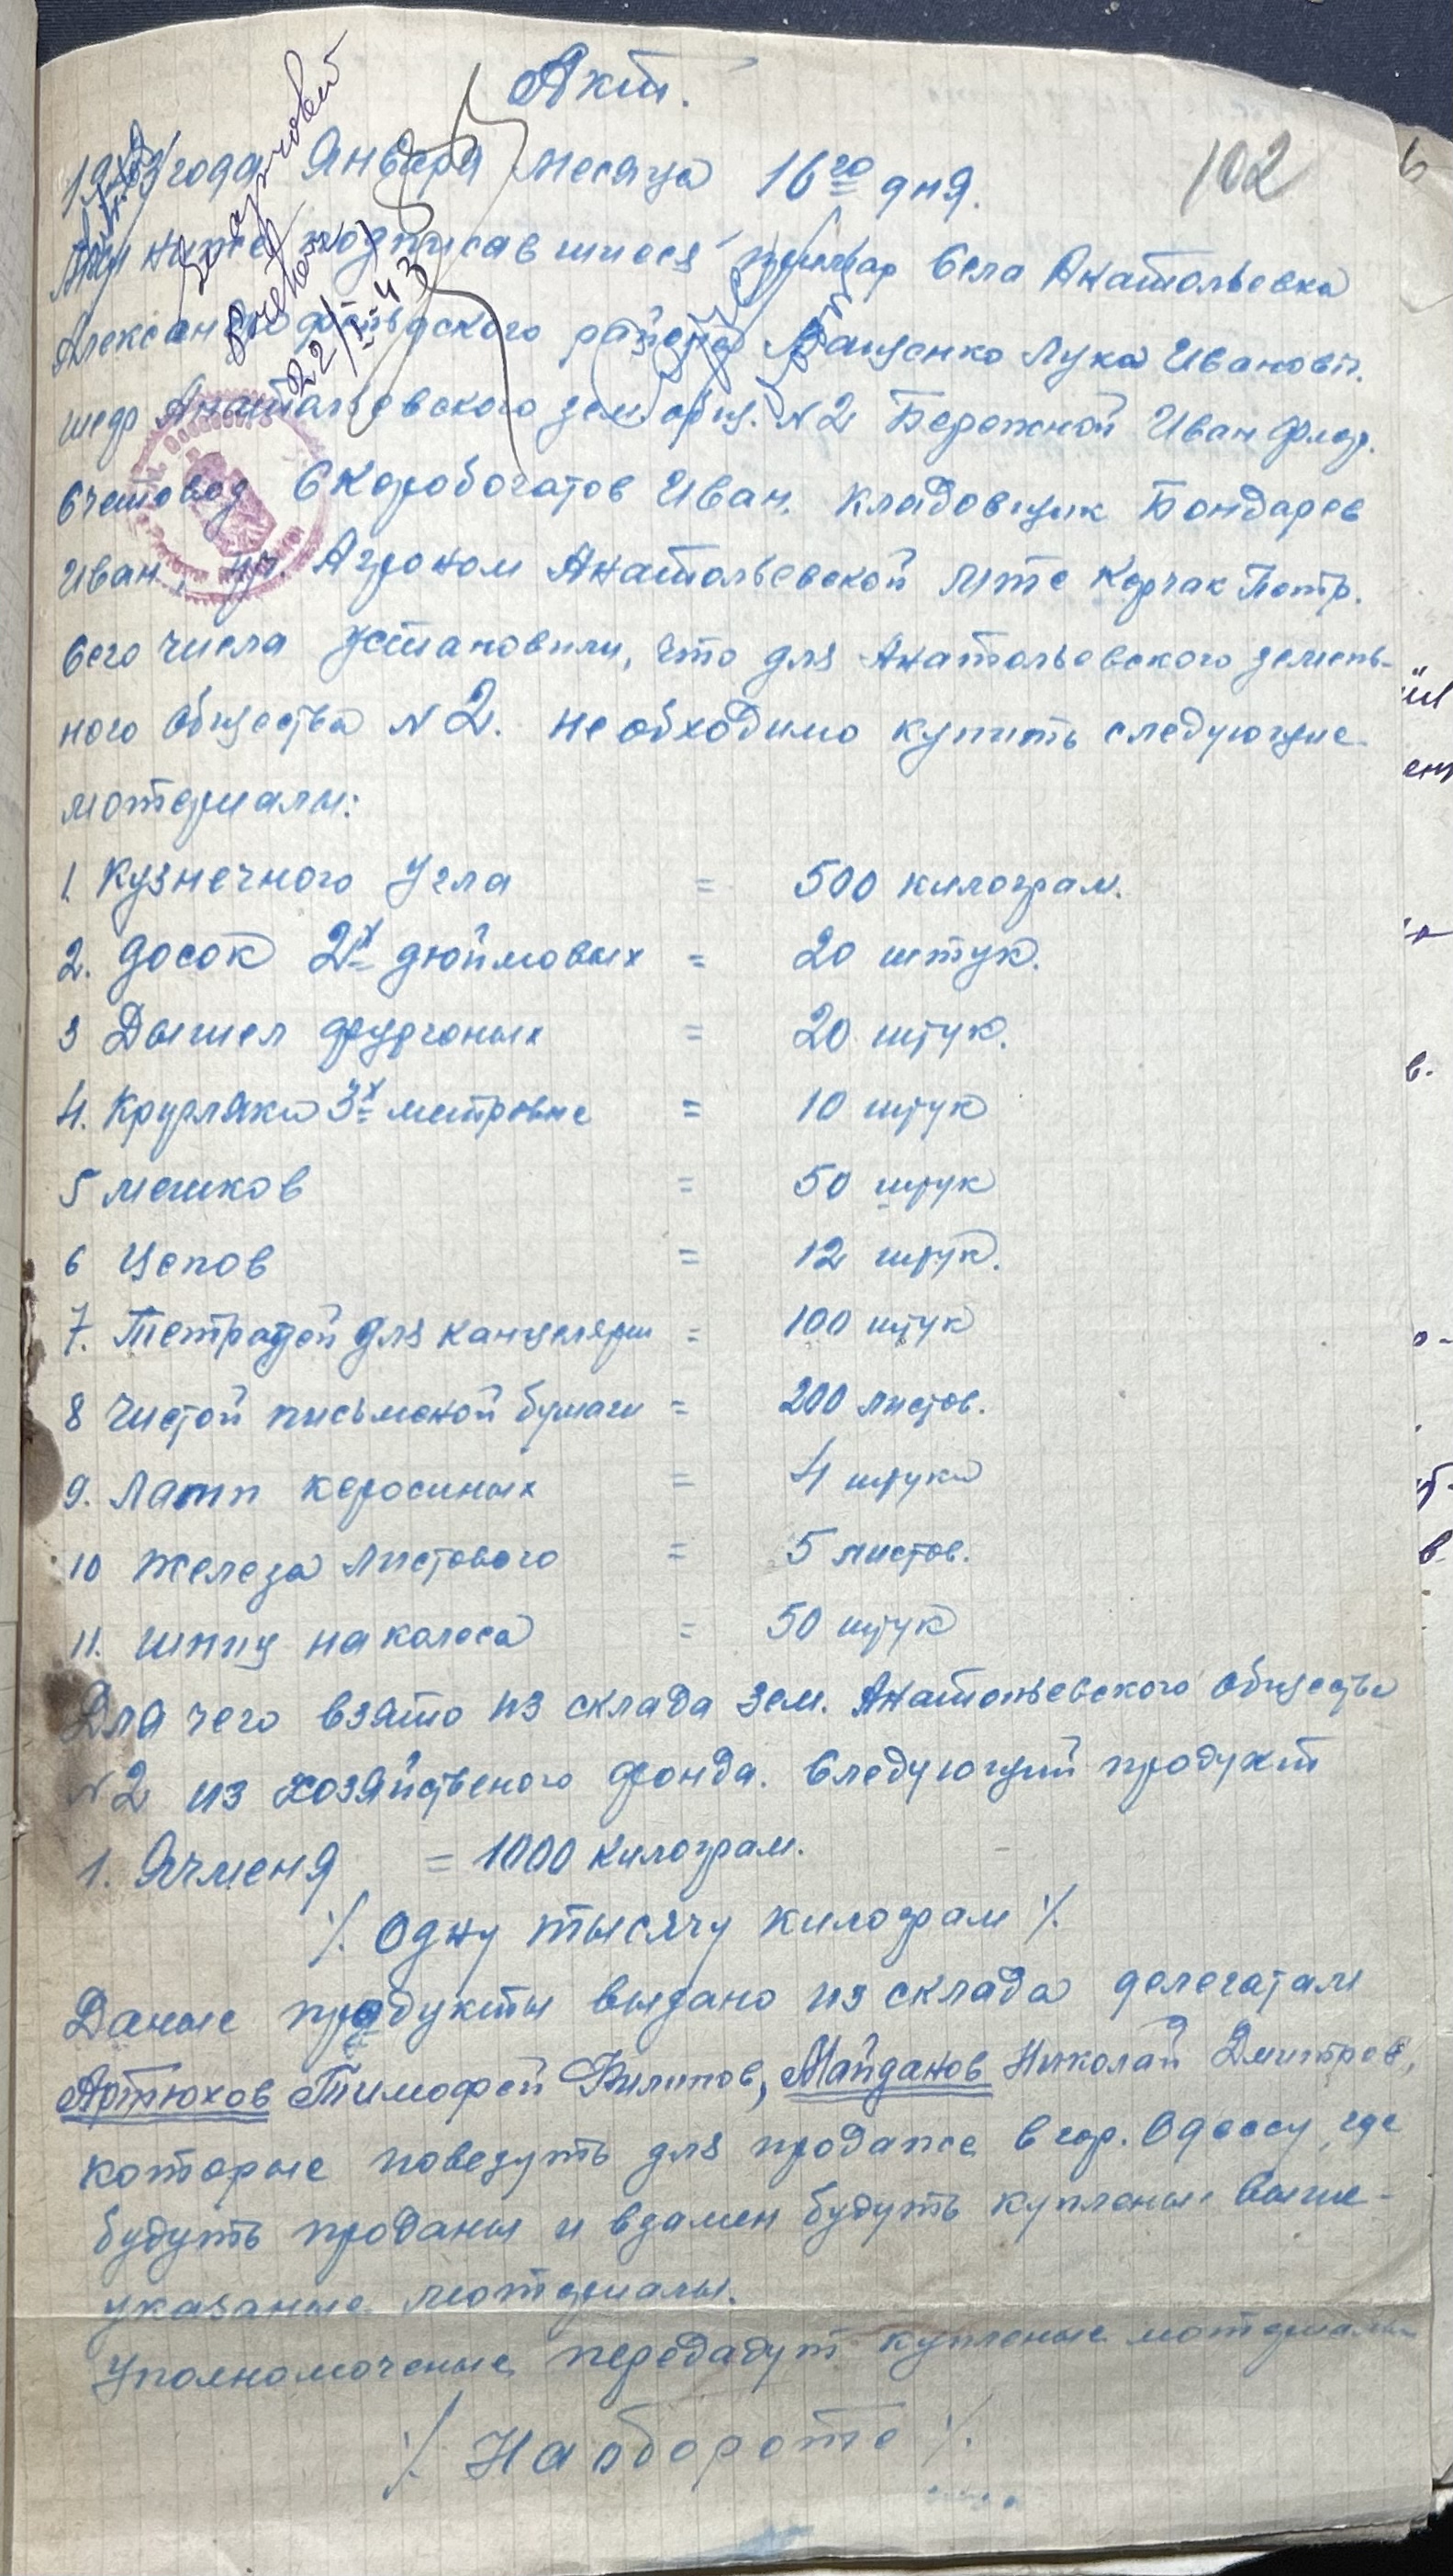 Акт.
102
1943 года Января месяца 16го дня.
Мы ниже подписавшиеся примар села Анатольевка
Александерфельдского района Ващенко Лука Иванович.
шеф Анатольевского зем. общ. N2 Бережной Иван Флор.
счетовод Скоробогатов Иван. кладовщик Бондарев
Иван, Агроном Анатольевской мтс Корчак Петр.
сего числа установили, что для Анатольевского земель-
ного общества N2. необходимо купить следующие
мотериалы:
1. Кузнечного Угля = 500 килограм.
2. досок 2х дюймовых = 20 штук.
3 Дышел фургоных = 20 штук.
4. Кругляки 3х метровые = 10 штук
5 мешков = 50 штук
6 Цепов = 12 штук.
7. Тетрадей для канцелярии = 100 штук
8 Чистой письменой бумаги = 200 листов.
9. Ламп керосиных = 4 штуки
10 Железа листового = 5 листов.
11. шину на колеса = 50 штук
Для чего взято из склада зем. Анатольевского общества
N2 из хозяйственого фонда. следующий продукт
1. Ячменя = 1000 килограм.
٪ Одну тысячу килограм ٪
Даные продукты выдано из склада делегатам
Артюхов Тимофей Филипов, Майданов Николай Дмитров,
которые повезуть для продажи в гор. Одессу, где
будуть проданы и взамен будуть купленые выше-
указаные мотериалы.
Уполномоченые передадут купленые мотериалы
٪ На обороте ٪
22/I-43